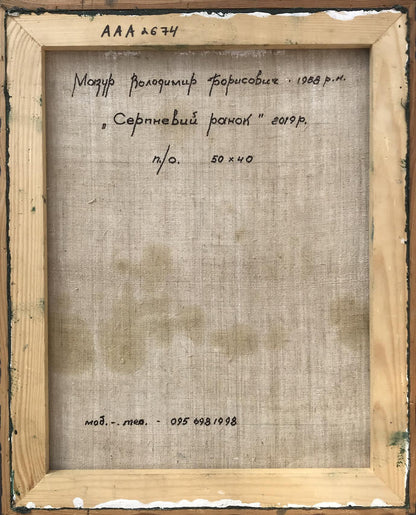 ААА 2674
Мазур Володимир Борисович . 1958 р.н.
„Серпневий ранок" 2019р.
п/о. 50 x 40
моб. -. тел. - 095 6981998